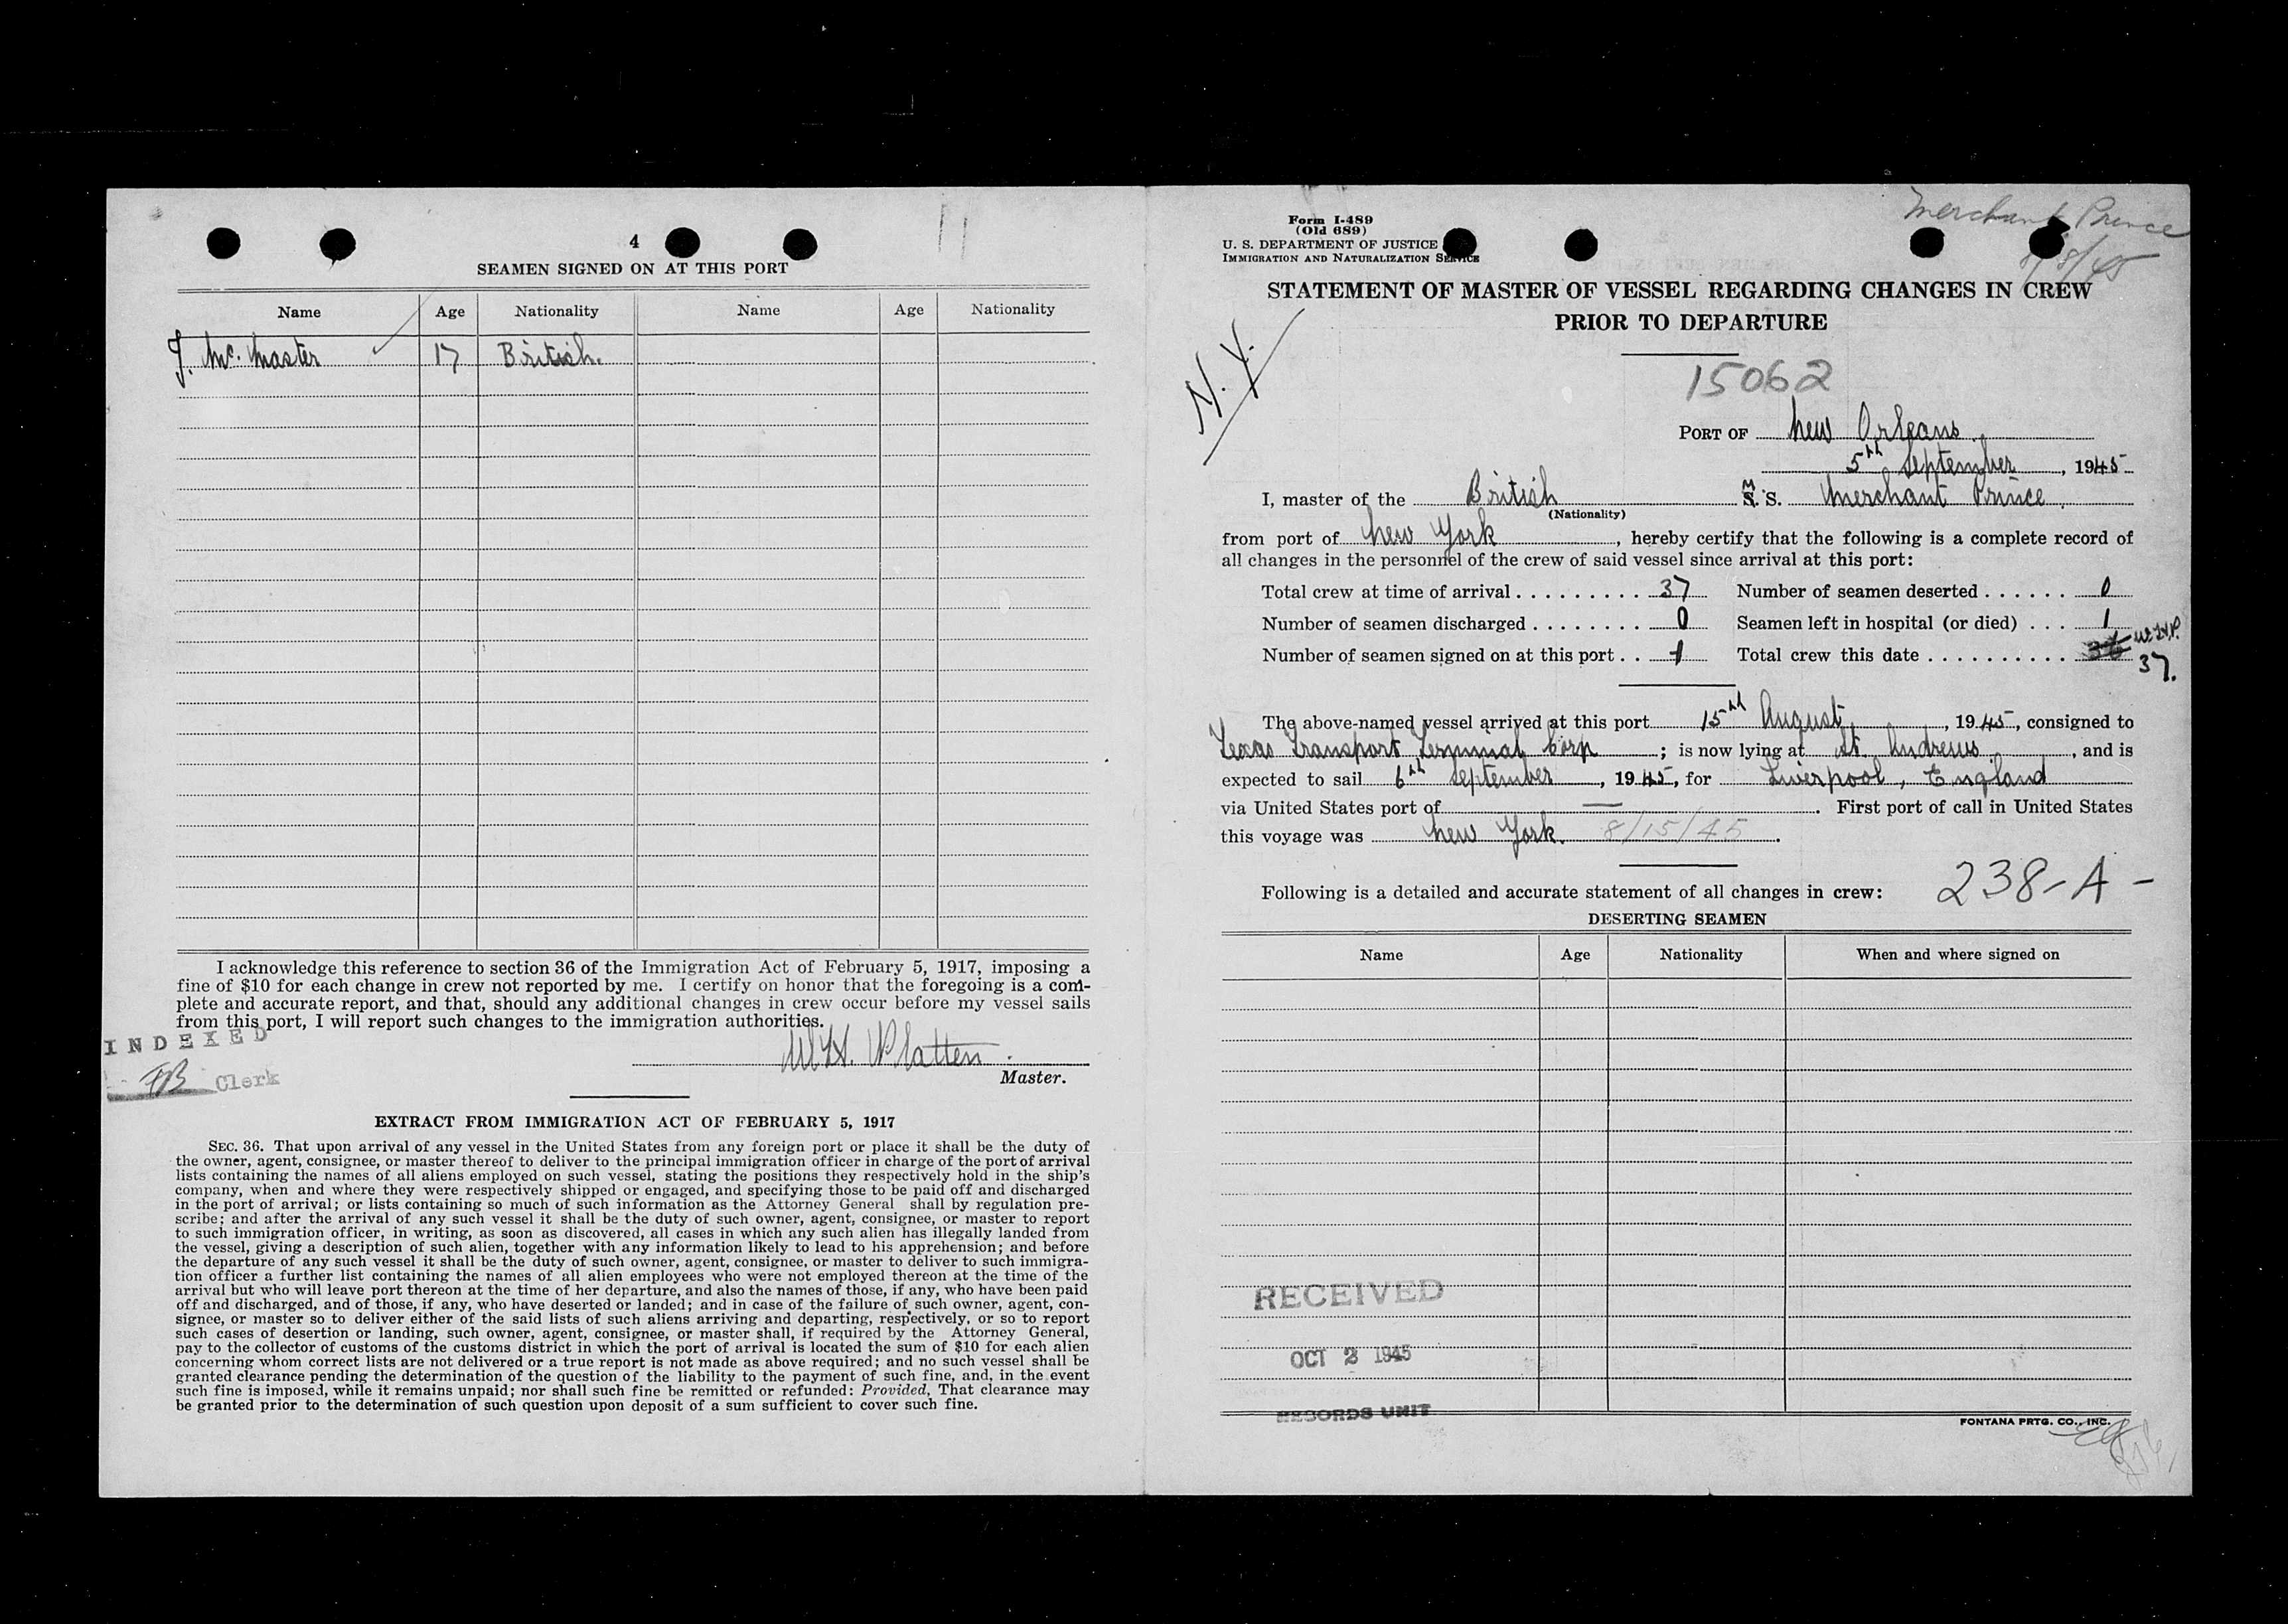 4
SEAMEN SIGNED ON AT THIS PORT
Name Age Nationality Name Age Nationality
J. Mc. Master 17 British.
I acknowledge this reference to section 36 of the Immigration Act of February 5, 1917, imposing a
fine of $10 for each change in crew not reported by me. I certify on honor that the foregoing is a com-
plete and accurate report, and that, should any additional changes in crew occur before my vessel sails
from this port, I will report such changes to the immigration authorities.
INDEXED
FB Clerk
W.H. Platten.
Master.
EXTRACT FROM IMMIGRATION ACT OF FEBRUARY 5, 1917
SEC. 36. That upon arrival of any vessel in the United States from any foreign port or place it shall be the duty of
the owner, agent, consignee, or master thereof to deliver to the principal immigration officer in charge of the port of arrival
lists containing the names of all aliens employed on such vessel, stating the positions they respectively hold in the ship's
company, when and where they were respectively shipped or engaged, and specifying those to be paid off and discharged
in the port of arrival; or lists containing so much of such information as the Attorney General shall by regulation pre-
scribe; and after the arrival of any such vessel it shall be the duty of such owner, agent, consignee, or master to report
to such immigration officer, in writing, as soon as discovered, all cases in which any such alien has illegally landed from
the vessel, giving a description of such alien, together with any information likely to lead to his apprehension; and before
the departure of any such vessel it shall be the duty of such owner, agent, consignee, or master to deliver to such immigra-
tion officer a further list containing the names of all alien employees who were not employed thereon at the time of the
arrival but who will leave port thereon at the time of her departure, and also the names of those, if any, who have been paid
off and discharged, and of those, if any, who have deserted or landed; and in case of the failure of such owner, agent, con-
signee, or master so to deliver either of the said lists of such aliens arriving and departing, respectively, or so to report
such cases of desertion or landing, such owner, agent, consignee, or master shall, if required by the Attorney General,
pay to the collector of customs of the customs district in which the port of arrival is located the sum of $10 for each alien
concerning whom correct lists are not delivered or a true report is not made as above required; and no such vessel shall be
granted clearance pending the determination of the question of the liability to the payment of such fine, and, in the event
such fine is imposed, while it remains unpaid; nor shall such fine be remitted or refunded: Provided, That clearance may
be granted prior to the determination of such question upon deposit of a sum sufficient to cover such fine.
Merchant Prince
Form I-489
(Old 689)
U. S. DEPARTMENT OF JUSTICE
IMMIGRATION AND NATURALIZATION SERVICE
STATEMENT OF MASTER OF VESSEL REGARDING CHANGES IN CREW
PRIOR TO DEPARTURE
N.Y.
15062
PORT OF New Orleans.
5th September, 1945
I, master of the British M.S. Merchant Prince.
(Nationality)
from port of New York, hereby certify that the following is a complete record of
all changes in the personnel of the crew of said vessel since arrival at this port:
Total crew at time of arrival . . . . . . . . . . 37 Number of seamen deserted . . . . . . 0
Number of seamen discharged . . . . . . . . 0 Seamen left in hospital (or died) . . . 1
Number of seamen signed on at this port . . 1 Total crew this date . . . . . . . . . . . 36 W.H.P.
37.
The above-named vessel arrived at this port 15th August, 1945, consigned to
Texas Transport Terminal Corp; is now lying at St. Andrews, and is
expected to sail 6th September, 1945, for Liverpool, England
via United States port of —. First port of call in United States
this voyage was New York. 8/15/45.
Following is a detailed and accurate statement of all changes in crew: 238-A-
DESERTING SEAMEN
Name Age Nationality When and where signed on
RECEIVED
OCT 2 1945
RECORDS UNIT
FONTANA PRTG. CO., INC.